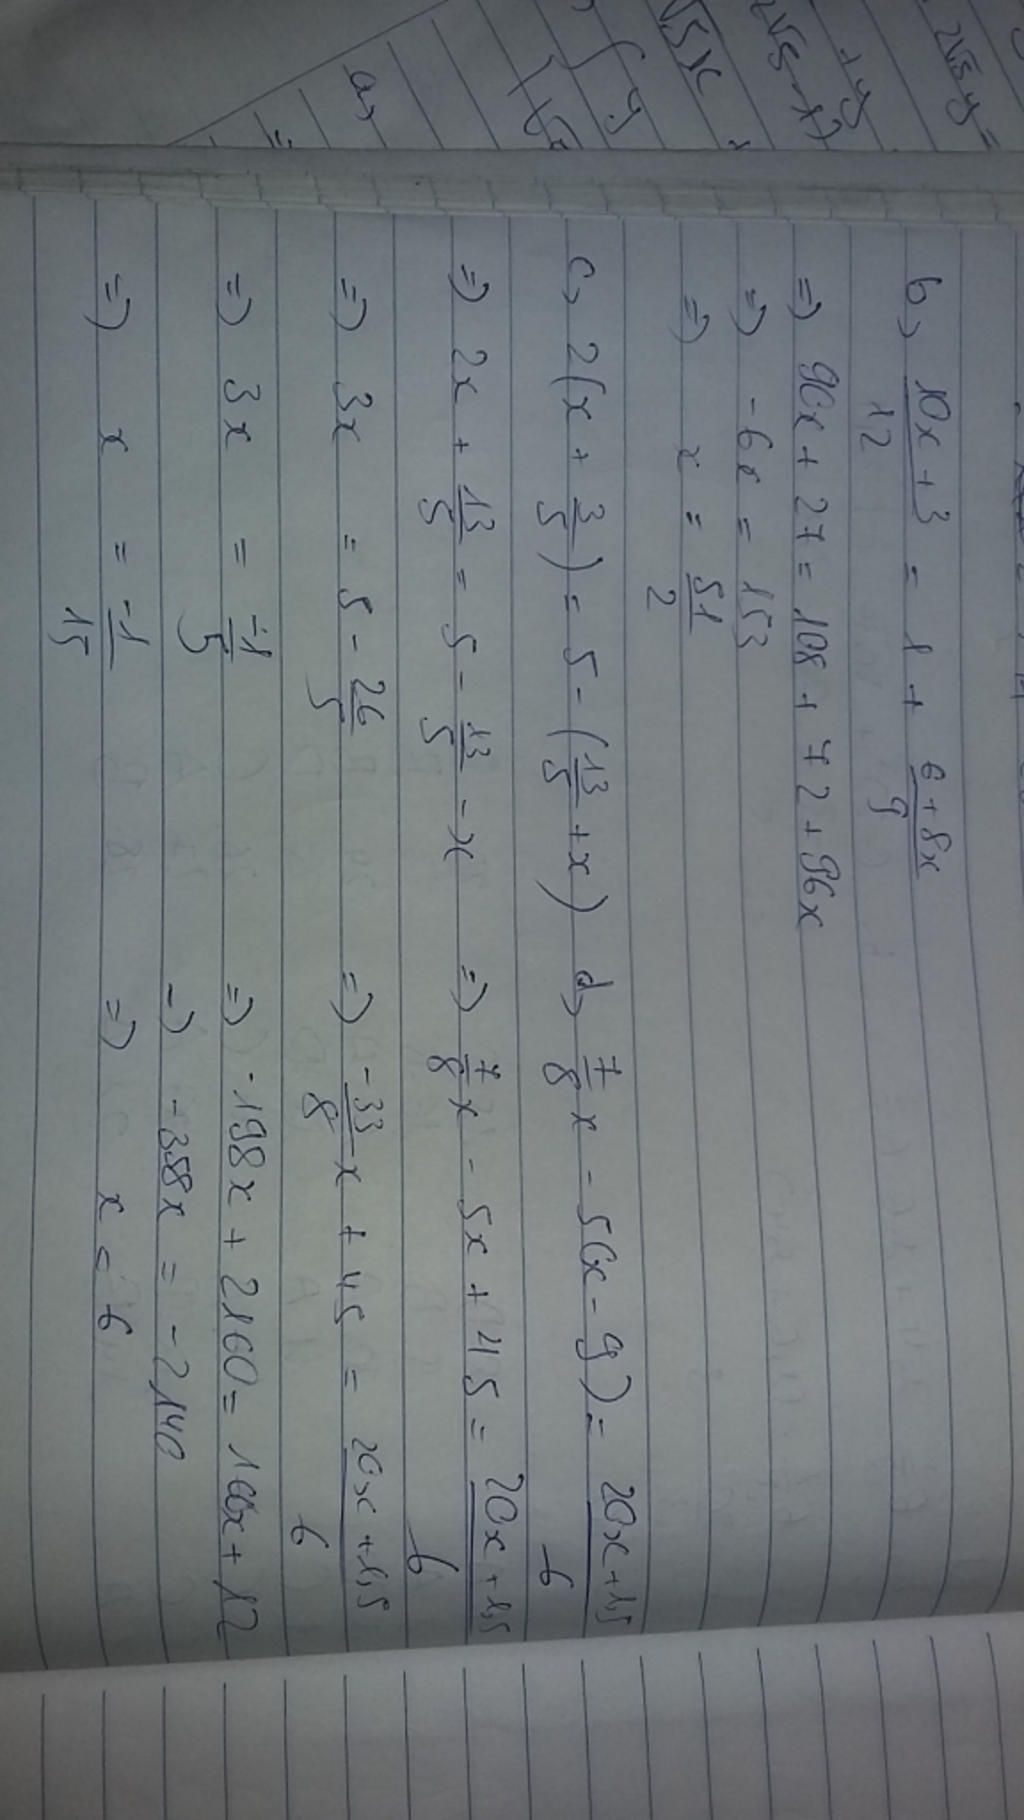 b, \frac{10x+3}{12} = 1 + \frac{6+8x}{9}
=) 90x + 27 = 108 + 72 + 96x
=) -6x = 153
=) x = \frac{51}{2}
c, 2(x + \frac{3}{5}) = 5 - (\frac{13}{5} + x)
=) 2x + \frac{13}{5} = 5 - \frac{13}{5} - x
=) 3x = 5 - \frac{26}{5}
=) 3x = \frac{-1}{5}
=) x = \frac{-1}{15}
d, \frac{7}{8}x - 5(x - 9) = \frac{20x+1,5}{6}
=) \frac{7}{8}x - 5x + 45 = \frac{20x+1,5}{6}
=) \frac{-33}{8}x + 45 = \frac{20x+1,5}{6}
=) -198x + 2160 = 160x + 12
=) -358x = -2140
=) x = 6
a,